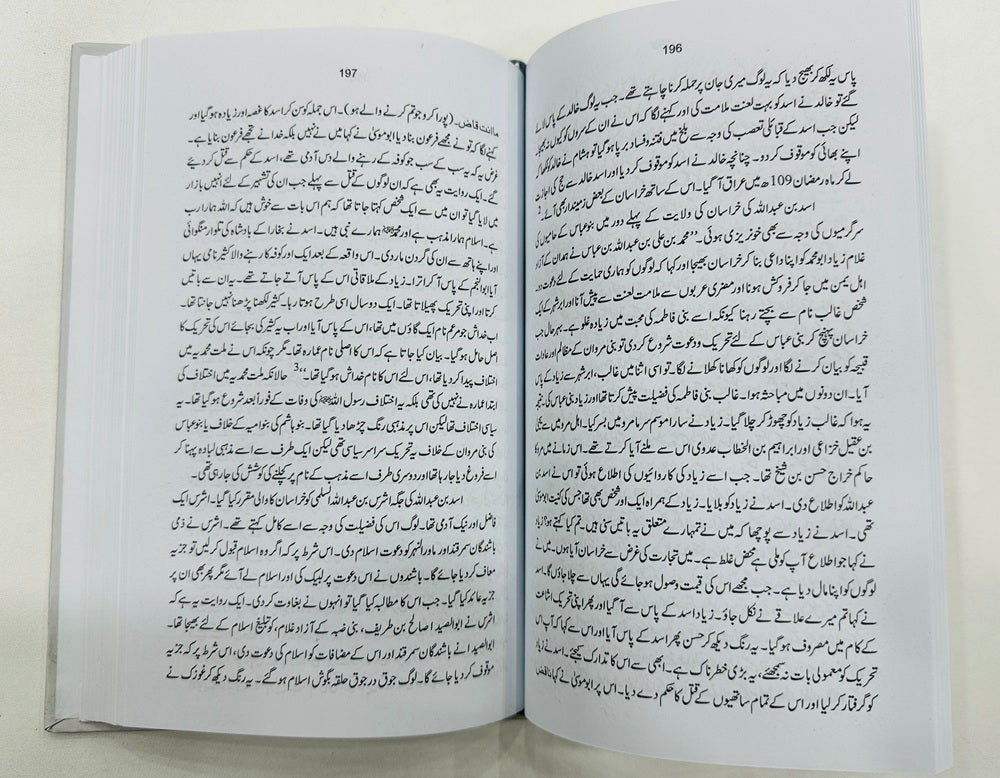 196
پاس یہ لکھ کر بھیج دیا کہ یہ لوگ میری جان پر حملہ کرنا چاہتے تھے۔ جب یہ لوگ خالد کے پاس لائے
گئے تو خالد نے اسد کو بہت لعنت ملامت کی اور کہنے لگا کہ اس نے ان کے سروں کو کیوں نہ بھیجا۔
لیکن جب اسد کے قبائلی تعصب کی وجہ سے بلخ میں فتنہ وفساد برپا ہوگیا تو ہشام نے خالد کو لکھا کہ
اپنے بھائی کو موقوف کردو۔ چنانچہ خالد نے اسد کو موقوف کردیا اور اسد خالد سے حج کی اجازت
لے کر ماہ رمضان 109ھ میں عراق آگیا۔ اس کے ساتھ خراسان کے بعض زمیندار بھی آئے۔2
اسد بن عبداللہ کی خراسان کی ولایت کے پہلے دور میں بنو عباس کے حامیوں کی
سرگرمیوں کی وجہ سے بھی خونریزی ہوئی۔ ”محمد بن علی بن عبداللہ بن عباس نے ہمدان کے آزاد
غلام زیاد ابو محمد کو اپنا داعی بنا کر خراسان بھیجا اور کہا کہ لوگوں کو ہماری حمایت کے لئے دعوت دو۔
اہل یمن میں جا کر فروکش ہونا اور مضری عربوں سے ملامت لعنت سے پیش آنا اور ابرشہر کے ایک
شخص غالب نام سے بچتے رہنا کیونکہ اسے بنی فاطمہ کی محبت میں زیادہ غلو ہے۔ بہرحال جب
خراسان پہنچ کر بنی عباس کے لئے تحریک ودعوت شروع کردی تو بنی مروان کے مظالم اور عادات
قبیحہ کو بیان کرنے لگا اور لوگوں کو کھانا کھلانے لگا۔ تو اسی اثنا میں غالب، ابرشہر سے زیاد کے پاس
آیا۔ ان دونوں میں مباحثہ ہوا۔ غالب بنی فاطمہ کی فضیلت پیش کرتا تھا اور زیاد بنی عباس کی۔ نتیجہ
یہ ہوا کہ غالب زیاد کو چھوڑ کر چلا گیا۔ زیاد نے سارا موسم سرما مرو میں بسر کیا۔ اہل مرو میں سے یحییٰ
بن عقیل خزاعی اور ابراہیم بن الخطاب عدوی اس سے ملنے آیا کرتے تھے۔ اس زمانے میں مرو کا
حاکم خراج حسن بن شیخ تھا۔ جب اسے زیاد کی کارروائیوں کی اطلاع ہوئی تو اس نے اسد بن
عبداللہ کو اطلاع دی۔ اسد نے زیاد کو بلایا۔ زیاد کے ہمراہ ایک اور شخص بھی تھا جس کی کنیت ابو موسیٰ
تھی۔ اسد نے زیاد سے پوچھا کہ میں نے تمہارے متعلق یہ باتیں سنی ہیں۔ تم کیا کہتے ہو؟ زیاد
نے کہا جو اطلاع آپ کو ملی ہے محض غلط ہے۔ میں تجارت کی غرض سے خراسان آیا ہوں۔ میں نے
لوگوں کو اپنا مال دیا ہے۔ جب مجھے اس کی قیمت وصول ہوجائے گی یہاں سے چلا جاؤں گا۔ اسد
نے کہا تم میرے علاقے نے نکل جاؤ۔ زیاد اسد کے پاس سے آگیا اور پھر اپنی تحریک اشاعت
کے کام میں مصروف ہوگیا۔ یہ رنگ دیکھ کر حسن پھر اسد کے پاس آیا اور اس سے کہا کہ آپ اس
تحریک کو معمولی بات نہ سمجھئے، یہ بڑی خطرناک ہے۔ ابھی سے اس کا تدارک کیجئے۔ اسد نے زیاد
کو گرفتار کرلیا اور اس کے تمام ساتھیوں کے قتل کا حکم دے دیا۔ اس پر ابو موسیٰ نے کہا فاقض
197
ما انت قاض۔ (پورا کرو جو تم کرنے والے ہو)۔ اس جملہ کو سن کر اسد کا غصہ اور زیادہ ہوگیا اور
کہنے لگا کہ تو نے مجھے فرعون بنا دیا ابو موسیٰ نے کہا میں نے نہیں بلکہ خدا نے تجھے فرعون بنایا ہے۔
غرض یہ کہ یہ سب کے سب جو کوفہ کے رہنے والے دس آدمی تھے، اسد کے حکم سے قتل کر دیئے
گئے۔ ایک روایت یہ بھی ہے کہ ان لوگوں کے قتل سے پہلے جب ان کی تشہیر کے لئے انہیں بازار
میں لایا گیا تو ان میں سے ایک شخص کہتا جاتا تھا کہ ہم اس بات سے خوش ہیں کہ اللہ ہمارا رب
ہے۔ اسلام ہمارا مذہب ہے اور محمدﷺ ہمارے نبی ہیں۔ اسد نے بخارا کے بادشاہ کی تلوار منگوائی
اور اپنے ہاتھ سے ان کی گردن ماردی۔ اس واقعہ کے بعد ایک اور کوفہ کا رہنے والا کثیر نامی یہاں
آیا ابوالنجم کے پاس آ کر اترا۔ زیاد کے ملاقاتی اس کے پاس آتے جاتے تھے۔ یہ ان سے باتیں
کرتا اور اپنی تحریک پھیلاتا تھا۔ ایک دو سال اسی طرح ہوتا رہا۔ کثیر لکھنا پڑھنا نہیں جانتا تھا۔
اب خداش جو مرعم نام ایک گاؤں میں تھا، اس کے پاس آیا اور اب یہ کثیر کی بجائے اس کی تحریک کا
اصل حامل ہوگیا۔ بیان کیا جاتا ہے کہ اس کا اصلی نام عمارہ تھا۔ مگر چونکہ اس نے ملت محمدیہ میں
اختلاف پیدا کر دیا تھا، اس لئے اس کا نام خداش ہوگیا تھا۔“3 حالانکہ ملت محمدیہ میں اختلاف کی
ابتدا عمارہ نے نہیں کی تھی بلکہ یہ اختلاف رسول اللہﷺ کی وفات کے فوراً بعد شروع ہوگیا تھا۔ یہ
سیاسی اختلاف تھا لیکن اس پر مذہبی رنگ چڑھا دیا گیا تھا۔ بنو ہاشم کی بنو امیہ کے خلاف یا بنو عباس
کی بنی مروان کے خلاف یہ تحریک سراسر سیاسی تھی لیکن ایک طرف سے اسے مذہبی لبادہ پہنا کر
اسے فروغ دیا جا رہا تھا اور دوسری طرف اسے مذہب کے نام پر کچلنے کی کوشش کی جارہی تھی۔
اسد بن عبداللہ کی جگہ اشرس بن عبداللہ السلمی کو خراسان کا والی مقرر کیا گیا۔ اشرس ایک
فاضل اور نیک آدمی تھا۔ لوگ اس کی فضیلت کی وجہ سے اسے کامل کہتے تھے۔ اشرس نے ذمی
باشندگان سمرقند اور ماوراءالنہر کو دعوت اسلام دی۔ اس شرط پر کہ اگر وہ اسلام قبول کرلیں تو جزیہ
معاف کر دیا جائے گا۔ باشندوں نے اس دعوت پر لبیک کی اور اسلام لے آئے مگر پھر بھی ان پر
جزیہ عائد کیا گیا۔ جب اس کا مطالبہ کیا گیا تو انہوں نے بغاوت کردی۔ ایک روایت یہ ہے کہ
اشرس نے ابوالصیدا صالح بن طریف، بنی ضبہ کے آزاد غلام، کو تبلیغ اسلام کے لئے بھیجا تھا۔
ابوالصیدا نے باشندگان سمرقند اور اس کے مضافات کو اسلام کی دعوت دی، اس شرط پر کہ جزیہ
موقوف کر دیا جائے گا۔ لوگ جوق در جوق حلقہ بگوش اسلام ہو گئے۔ یہ رنگ دیکھ کر غوزک نے